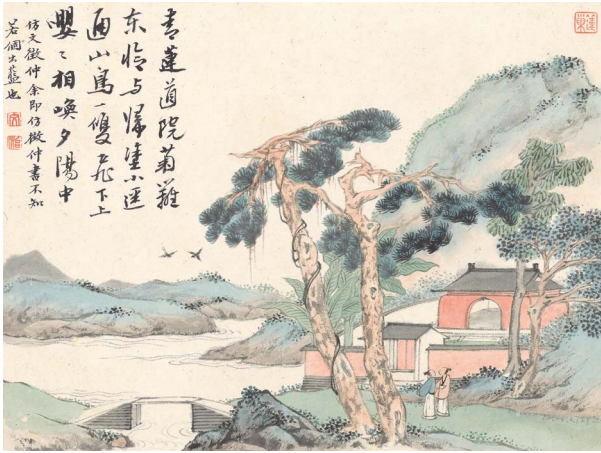 青蓮道院菊籬
东恰与歸塗小逕
通山鳥一雙飛下上
嚶〻相喚夕陽中
仿文徵仲余即仿徵仲書不知
若個出藍也